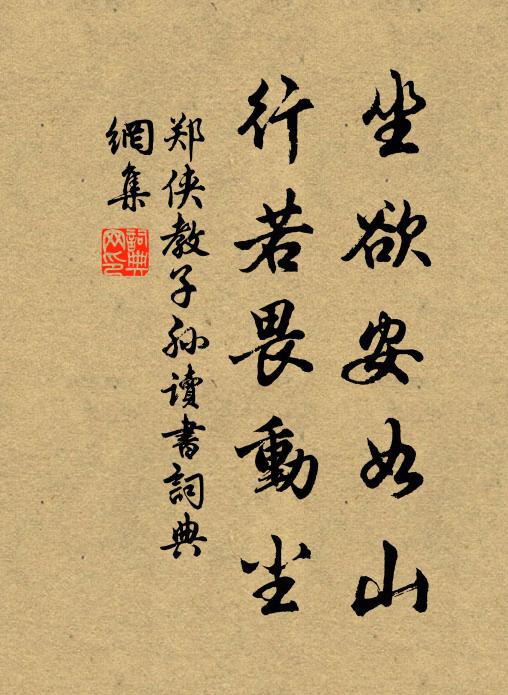 坐欲安如山
行若畏動尘
郑侠教子孙讀書詞典
網集
詞典
网印